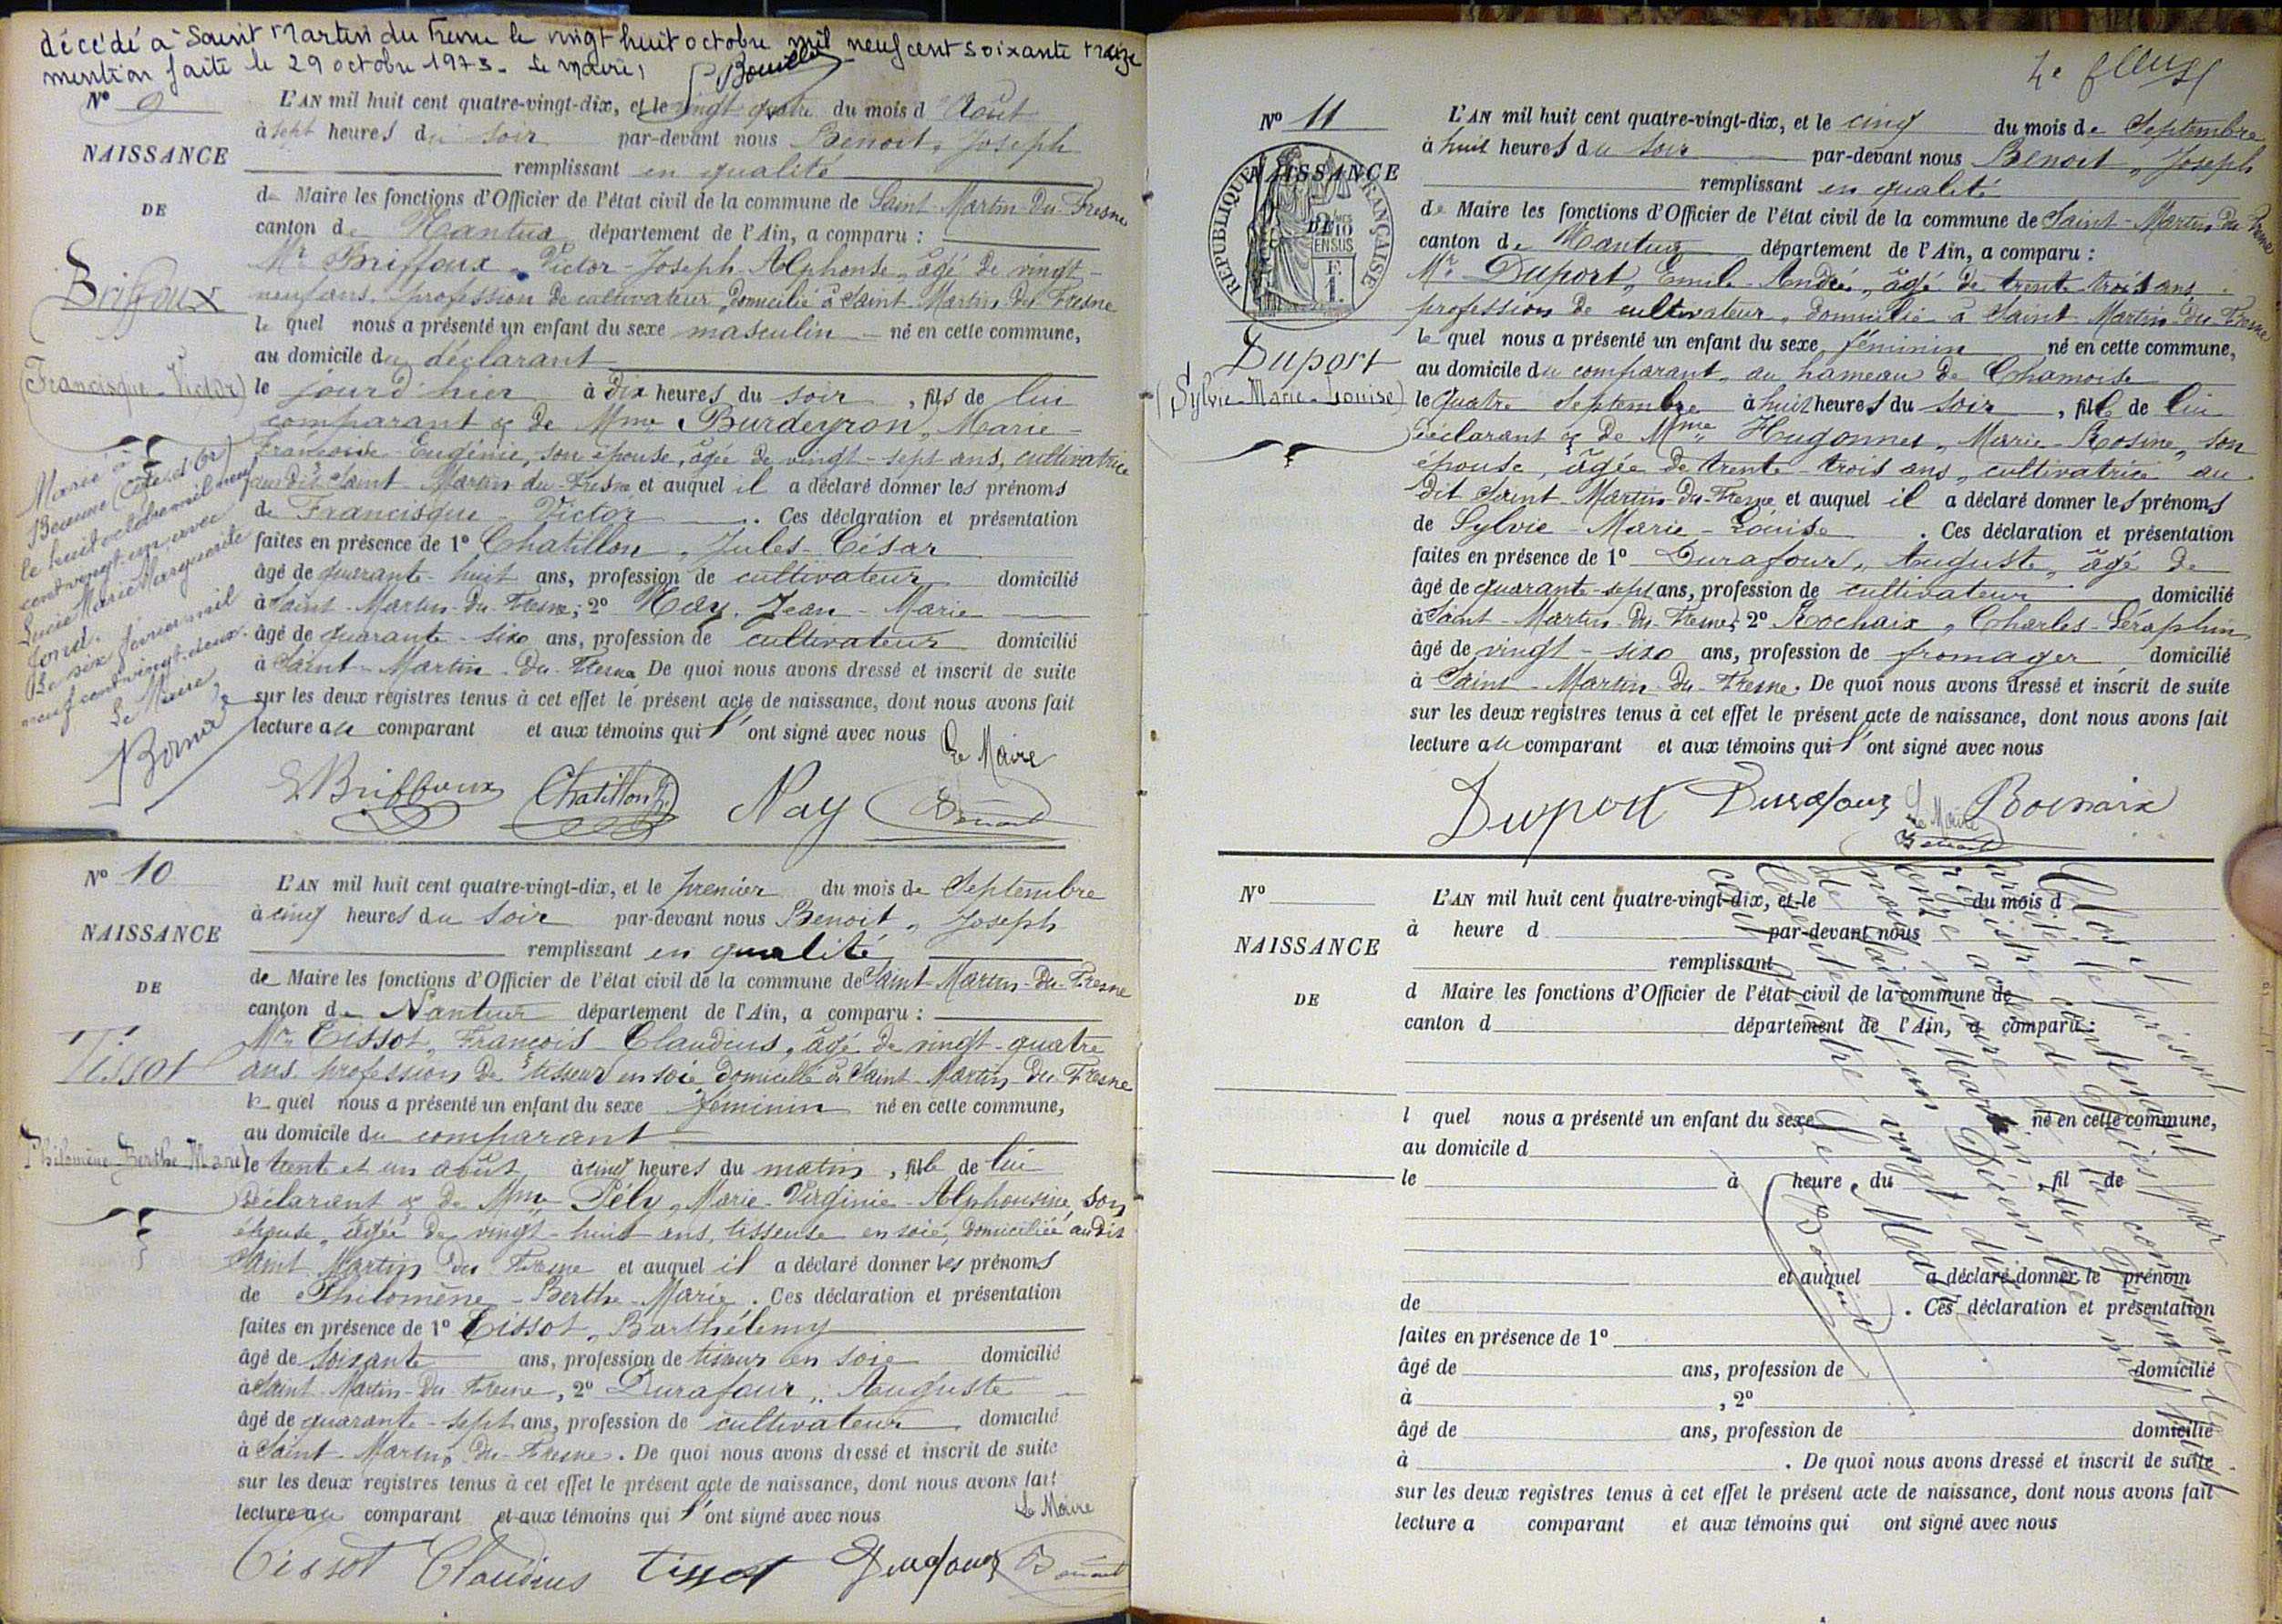 décédé à Saint Martin du Fresne le vingt huit octobre mil neuf cent soixante treize
mention faite le 29 octobre 1973. Le maire,
N° 9
NAISSANCE
DE
Briffoux
(Francisque-Victor)
Marié à
Beaune (Côte d'Or)
le huit octobre mil neuf
cent vingt-un avec
Lucie Marie Marguerite
Le six février mil
neuf cent vingt-deux.
Le Maire,
L'AN mil huit cent quatre-vingt-dix, et le vingt quatre du mois d'Août
à sept heures du soir par-devant nous Benoit, Joseph
remplissant en qualité
de Maire les fonctions d'Officier de l'état civil de la commune de Saint-Martin-Du-Fresne
canton de Nantua département de l'Ain, a comparu :
Mr Briffoux, Victor-Joseph-Alphonse, âgé de vingt-
neuf ans, profession de cultivateur, domicilié à Saint-Martin-du-Fresne
le quel nous a présenté un enfant du sexe masculin né en cette commune,
au domicile du déclarant
le jour d'hier à dix heures du soir, fils de lui
comparant & de Mme Burdeyron, Marie-
Françoise-Eugénie, son épouse, âgée de vingt-sept ans, cultivatrice
au dit Saint-Martin-du-Fresne et auquel il a déclaré donner les prénoms
de Francisque-Victor. Ces déclaration et présentation
faites en présence de 1° Chatillon, Jules-César
âgé de quarante-huit ans, profession de cultivateur domicilié
à Saint-Martin-du-Fresne; 2° Nay, Jean-Marie
âgé de quarante-six ans, profession de cultivateur domicilié
à Saint-Martin-Du-Fresne De quoi nous avons dressé et inscrit de suite
sur les deux registres tenus à cet effet le présent acte de naissance, dont nous avons fait
lecture au comparant et aux témoins qui l'ont signé avec nous
Le Maire
Briffoux Chatillon J. Nay Benoit
N° 10
NAISSANCE
DE
Tissot
Philomène-Berthe-Marie)
L'AN mil huit cent quatre-vingt-dix, et le premier du mois de Septembre
à cinq heures du soir par-devant nous Benoit, Joseph
remplissant en qualité
de Maire les fonctions d'Officier de l'état civil de la commune de Saint-Martin-Du-Fresne
canton de Nantua département de l'Ain, a comparu :
Mr Tissot, François-Claudius, âgé de vingt-quatre
ans, profession de tisseur en soie, domicilié à Saint-Martin-Du-Fresne
le quel nous a présenté un enfant du sexe féminin né en cette commune,
au domicile du comparant
le trente et un août à cinq heures du matin, fille de lui
déclarant & de Mme Pély, Marie-Virginie-Alphonsine, son
épouse, âgée de vingt-huit ans, tisseuse en soie, domiciliée audit
Saint-Martin-du-Fresne et auquel il a déclaré donner les prénoms
de Philomène-Berthe-Marie. Ces déclaration et présentation
faites en présence de 1° Tissot, Barthélemy
âgé de soixante ans, profession de tisseur en soie domicilié
à Saint-Martin-Du-Fresne, 2° Durafour, Auguste
âgé de quarante-sept ans, profession de cultivateur domicilié
à Saint-Martin-Du-Fresne. De quoi nous avons dressé et inscrit de suite
sur les deux registres tenus à cet effet le présent acte de naissance, dont nous avons fait
lecture au comparant et aux témoins qui l'ont signé avec nous
Le Maire
Tissot Claudius Tissot Durafour Benoit
N° 11
NAISSANCE
DE
REPUBLIQUE FRANÇAISE
Duport
(Sylvie-Marie-Louise)
L'AN mil huit cent quatre-vingt-dix, et le cinq du mois de Septembre
à huit heures du soir par-devant nous Benoit, Joseph
remplissant en qualité
de Maire les fonctions d'Officier de l'état civil de la commune de Saint-Martin-Du-Fresne
canton de Nantua département de l'Ain, a comparu :
Mr Duport, Emile-André, âgé de trente-trois ans
profession de cultivateur, domicilié à Saint-Martin-Du-Fresne
le quel nous a présenté un enfant du sexe féminin né en cette commune,
au domicile du comparant, au hameau de Chamoise
le quatre Septembre à huit heures du soir, fille de lui
déclarant & de Mme Hugonnet, Marie-Rosine, son
épouse, âgée de trente-trois ans, cultivatrice au
dit Saint-Martin-Du-Fresne, et auquel il a déclaré donner les prénoms
de Sylvie-Marie-Louise. Ces déclaration et présentation
faites en présence de 1° Durafour, Auguste, âgé de
âgé de quarante-sept ans, profession de cultivateur domicilié
à Saint-Martin-Du-Fresne, 2° Rochaix, Charles-Séraphin
âgé de vingt-six ans, profession de fromager domicilié
à Saint-Martin-Du-Fresne. De quoi nous avons dressé et inscrit de suite
sur les deux registres tenus à cet effet le présent acte de naissance, dont nous avons fait
lecture au comparant et aux témoins qui l'ont signé avec nous
Duport Durafour Rochaix
Le Maire
Benoit
N°
NAISSANCE
DE
L'AN mil huit cent quatre-vingt-dix, et le du mois d
à heure d par-devant nous
remplissant
d Maire les fonctions d'Officier de l'état civil de la commune de
canton d département de l'Ain, a comparu :
l quel nous a présenté un enfant du sexe né en cette commune,
au domicile d
le à heure du , fil de
et auquel a déclaré donner le prénom
de . Ces déclaration et présentation
faites en présence de 1°
âgé de ans, profession de domicilié
à , 2°
âgé de ans, profession de domicilié
à . De quoi nous avons dressé et inscrit de suite
sur les deux registres tenus à cet effet le présent acte de naissance, dont nous avons fait
lecture a comparant et aux témoins qui ont signé avec nous
Clos et le présent
registre contenant
onze actes de
Le Maire
Benoit